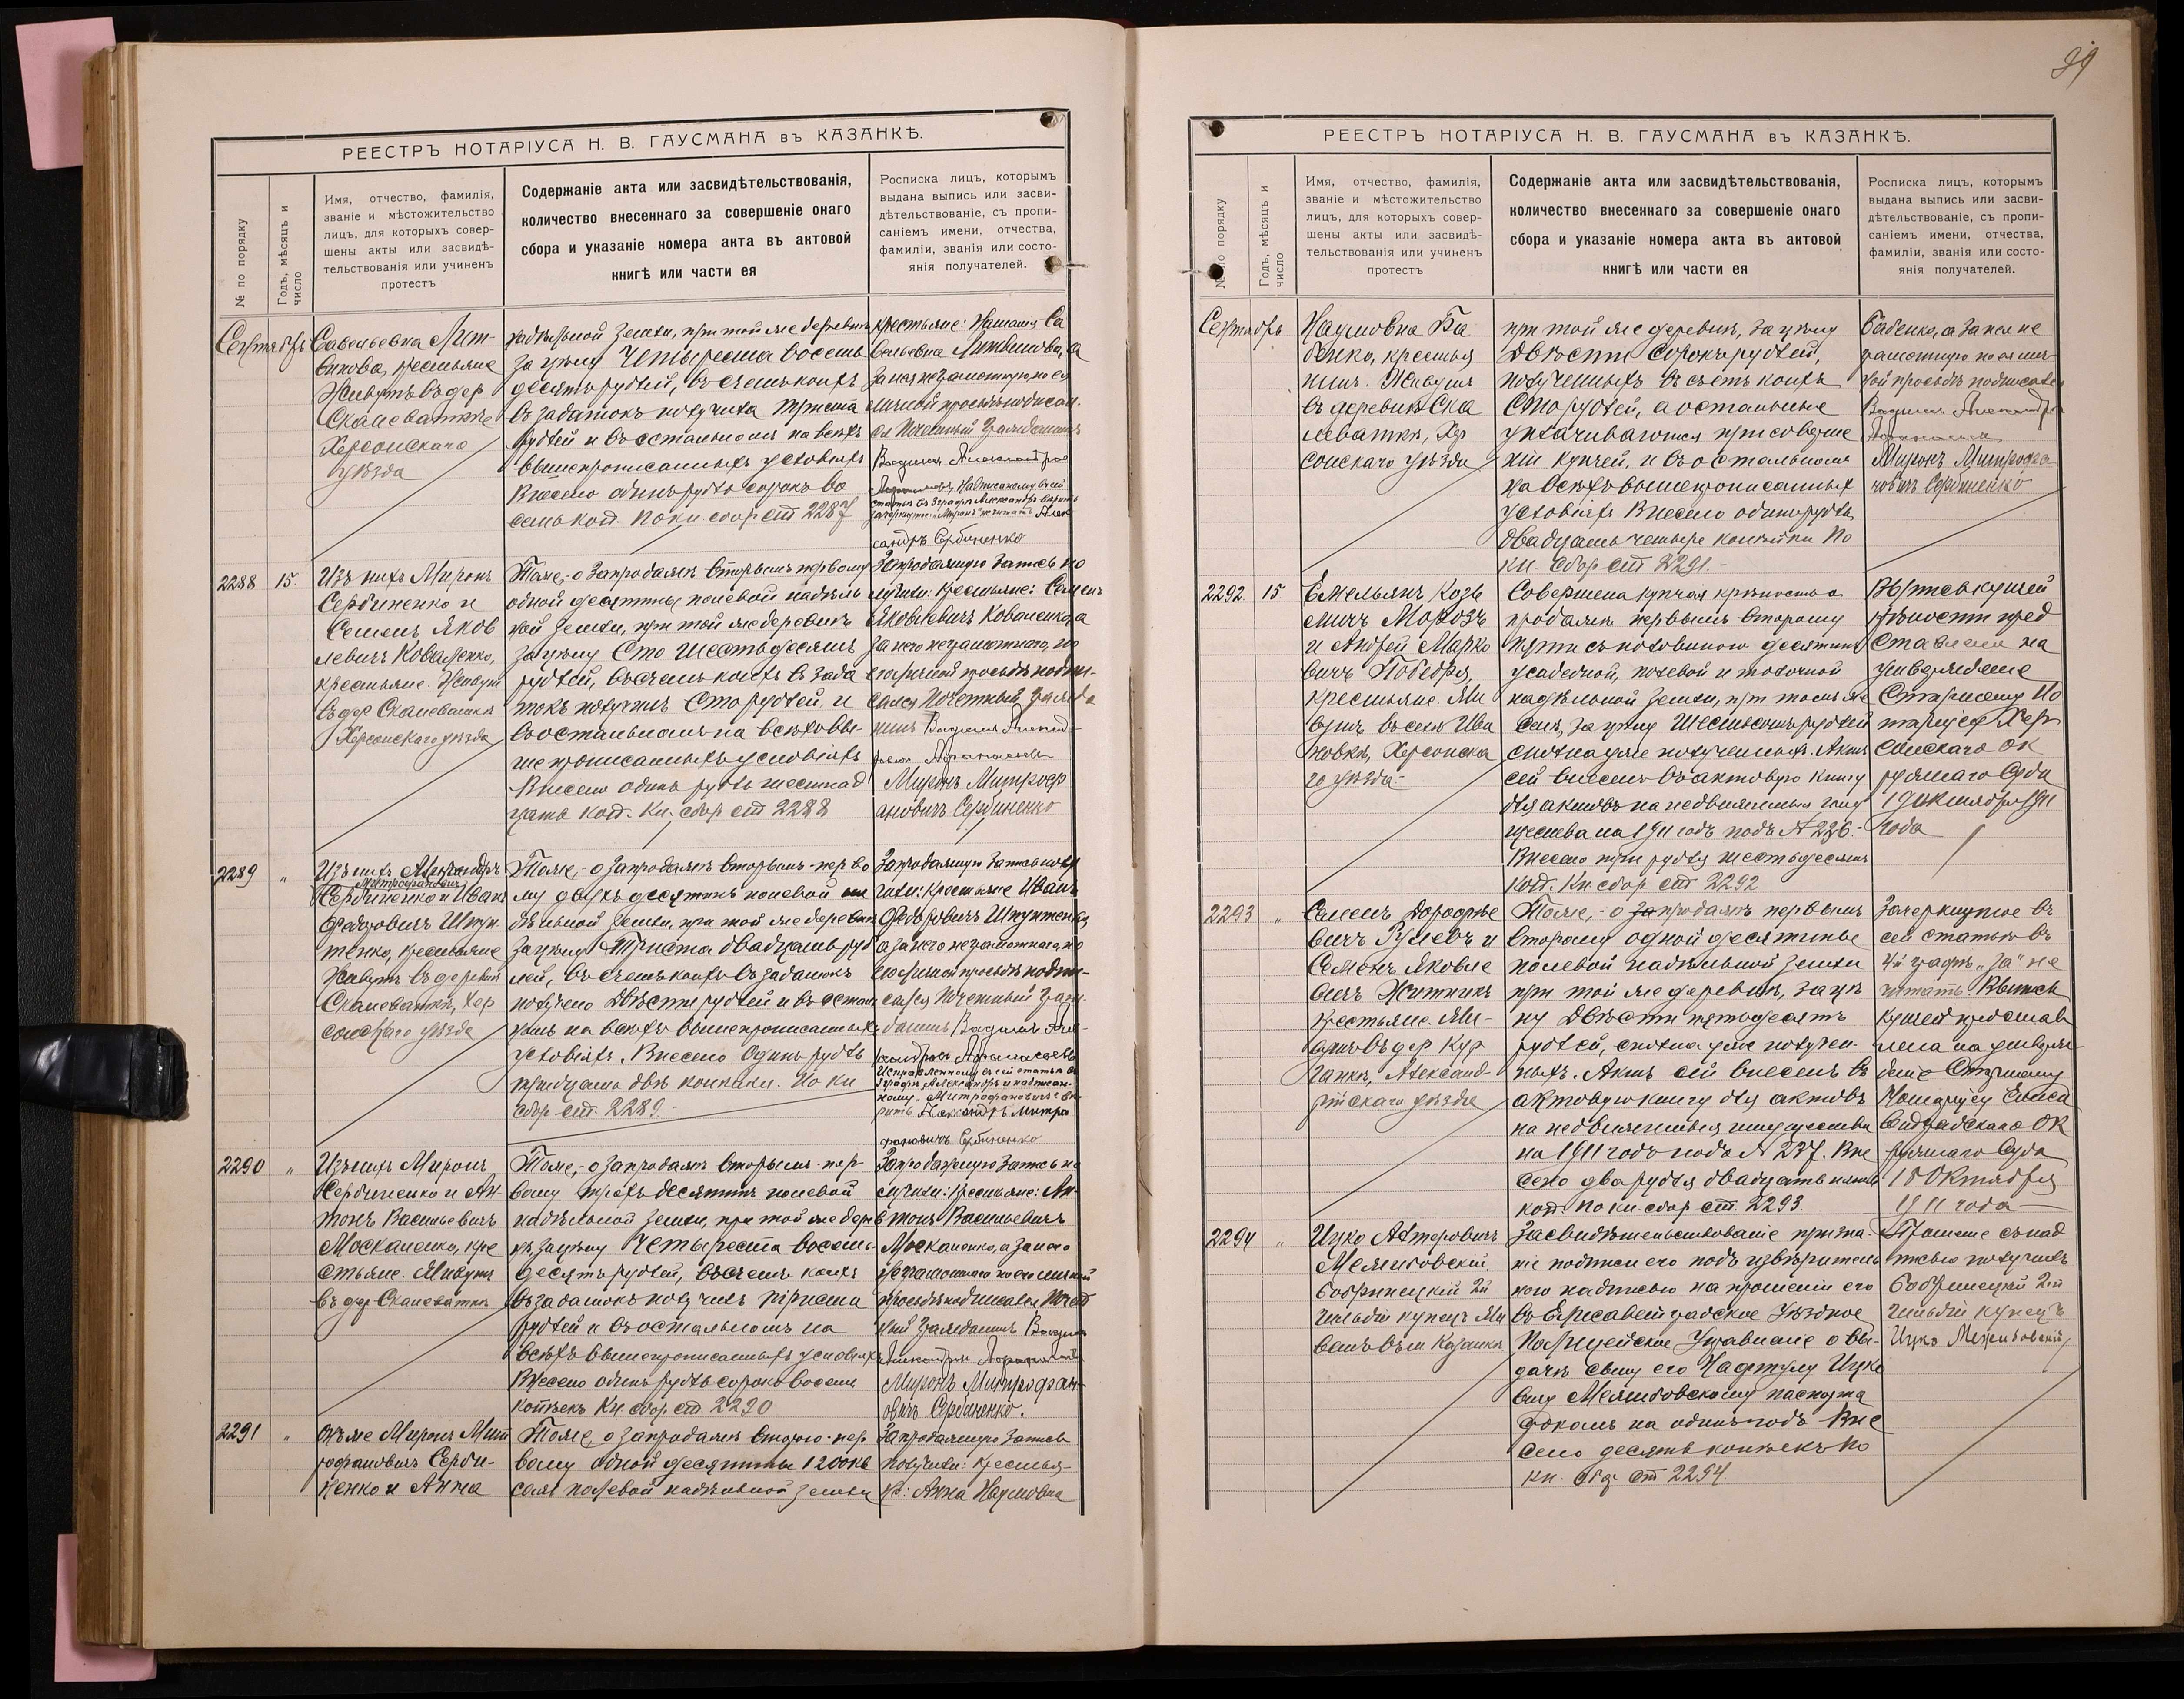 РЕЕСТРЪ НОТАРІУСА Н. В. ГАУСМАНА въ КАЗАНКѢ.
№ по порядку
Годъ, мѣсяцъ и
число
Имя, отчество, фамилія,
званіе и мѣстожительство
лицъ, для которыхъ совер-
шены акты или засвидѣ-
тельствованія или учиненъ
протестъ
Содержаніе акта или засвидѣтельствованія,
количество внесеннаго за совершеніе онаго
сбора и указаніе номера акта въ актовой
книгѣ или части ея
Росписка лицъ, которымъ
выдана выпись или засви-
дѣтельствованіе, съ пропи-
саніемъ имени, отчества,
фамиліи, званія или состо-
янія получателей.
Сентябрь
Савельевна Лит-
винова, крестьяне
Живутъ въ дер
Скалеваткѣ
Херсонскаго
уѣзда
надѣльной земли, при той же деревнѣ
за цѣну Четыреста восемь
десятъ рублей, въ счетъ коихъ
въ задатокъ получила триста
рублей и въ остальномъ на всѣхъ
вышепрописанныхъ условіяхъ
Внесено одинъ рубль сорокъ во
семь коп. По кн. сбор ст 2287
крестьяне: Наталія Са
вельевна Литвинова, а
за нея неграмотную, по ея
личной просьбѣ подписал-
ся Почетный Гражданинъ
Вадимъ Александров
сандръ Сербиненко
2288
15.
Изъ нихъ Миронъ
Сербиненко и
Семенъ Яков
левичъ Коваленко,
крестьяне. Живутъ
въ дер Скалеваткѣ
Херсонскаго уѣзда
Тоже,- о запродажѣ вторымъ первому
одной десятины полевой надѣль
ной земли, при той же деревнѣ
за цѣну Сто шестьдесятъ
рублей, въ счетъ коихъ въ зада
токъ получилъ Сто рублей и
въ остальномъ на всѣхъ вы-
шепрописанныхъ условіяхъ
Внесено одинъ рубль шестнад
цать коп. Кн. сбор ст 2288
Запродажную запись по
лучили: крестьяне: Семенъ
Яковлевичъ Коваленко, а
за него неграмотнаго, по
его личной просьбѣ подпи-
сался Почетный Гражда
нинъ Вадимъ Александ-
Миронъ Митроф
ановичъ Сербиненко
2289
"
Изъ нихъ Александръ
Митрофановичъ
Сербиненко и Иванъ
Федоровичъ Шпун-
тенко, крестьяне
Живутъ въ деревнѣ
Скалеваткѣ, Хер
сонскаго уѣзда
Тоже,- о запродажѣ вторымъ-перво
му двухъ десятинъ полевой на
дѣльной земли, при той же деревнѣ
за цѣну Триста двадцать руб
лей, въ счетъ коихъ въ задатокъ
получено Двѣсти рублей и въ осталь
номъ на всѣхъ вышепрописанныхъ
условіяхъ. Внесено Одинъ рубль
тридцать двѣ копѣйки. По кн
сбор ст. 2289.-
Запродажную запись полу
чили: крестьяне Иванъ
Федоровичъ Шпунтенко,
а за него неграмотнаго, по
его личной просьбѣ подпи-
сался Почетный Граж-
данинъ Вадимъ Але-
ксандровъ Афанасьевъ
Исправленному въ сей статьѣ въ
3 графѣ Александръ и надписан-
ному „Митрофановичъ“ вѣ-
рить Александръ Митро
фановичъ Сербиненко
2290
"
Изъ нихъ Миронъ
Сербиненко и Ан-
тонъ Васильевичъ
Москаленко, кре
стьяне. Живутъ
въ дер Скалеваткѣ
Тоже,- о запродажѣ вторымъ-пер-
вому трехъ десятинъ полевой
надѣльной земли, при той же дерев
нѣ, за цѣну Четыреста восемь-
десятъ рублей, въ счетъ коихъ
въ задатокъ получилъ триста
рублей и въ остальномъ на
всѣхъ вышепрописанныхъ условіяхъ
Внесено одинъ рубль сорокъ восемь
копѣекъ Кн. сбор ст. 2290
Запродажную запись по
лучили: крестьяне: Ан-
тонъ Васильевичъ
Москаленко, а за него
неграмотнаго по его личной
просьбѣ подписался Почет
ный Гражданинъ Вадимъ
Миронъ Митрофан-
овичъ Сербиненко.
2291
"
Онъ же Миронъ Мит
рофановичъ Серби-
ненко и Анна
Тоже, о запродажѣ второю-пер
вому одной десятины 1200 кв
саж полевой надѣльной земли
Запродажную запись
получили: крестья-
не: Анна Наумовна
39
РЕЕСТРЪ НОТАРІУСА Н. В. ГАУСМАНА въ КАЗАНКѢ.
№ по порядку
Годъ, мѣсяцъ и
число
Имя, отчество, фамилія,
званіе и мѣстожительство
лицъ, для которыхъ совер-
шены акты или засвидѣ-
тельствованія или учиненъ
протестъ
Содержаніе акта или засвидѣтельствованія,
количество внесеннаго за совершеніе онаго
сбора и указаніе номера акта въ актовой
книгѣ или части ея
Росписка лицъ, которымъ
выдана выпись или засви-
дѣтельствованіе, съ пропи-
саніемъ имени, отчества,
фамиліи, званія или состо-
янія получателей.
Сентябрь
Наумовна Ба
бенко, крестья
нинъ. Живутъ
въ деревнѣ Ска
леваткѣ, Хер
сонскаго уѣзда
при той же деревнѣ, за цѣну
Двѣсти Сорокъ рублей,
полученныхъ въ счетъ коихъ
Сто рублей, а остальные
уплачиваются при соверше
ніи купчей, и въ остальномъ
на всѣхъ вышепрописанныхъ
условіяхъ Внесено одинъ рубль
двадцать четыре копѣйки По
кн. сбор ст 2291.-
Бабенко, а за нея не
грамотную по ея лич
ной просьбѣ подписался
Вадимъ Александров
Миронъ Митрофа
новичъ Сербиненко
2292
15
Емельянъ Козь
мичъ Морозъ
и Андрей Марко
вичъ Побебря,
крестьяне. Жи
вутъ въ селѣ Ива
новкѣ, Херсонска
го уѣзда-
Совершена купчая крѣпость о
продажѣ первымъ второму
пяти съ половиною десятинъ
усадебной, полевой и толочной
надѣльной земли, при томъ же
селѣ, за цѣну Шестьсотъ рублей
сполна уже полученныхъ. Актъ
сей внесенъ въ актовую книгу
для актовъ на недвижимыя иму
щества на 1911 годъ подъ № 236.-
Внесено три рубля шестьдесятъ
коп. Кн сбор ст 2292
Выпись купчей
крѣпости пред
ставлена на
утвержденіе
Старшему Но
таріусу Хер
сонскаго Ок
ружнаго Суда
19 Октября 1911
года
2293
"
Семенъ Дорофѣе
вичъ Гулевъ и
Семенъ Яковле
вичъ Житникъ
крестьяне. Жи-
вутъ въ дер Кур
ганкѣ, Александ-
рійскаго уѣзда
Тоже,- о запродажѣ первымъ
второму одной десятины
полевой надѣльной земли
при той же деревнѣ, за цѣ
ну Двѣсти пятьдесятъ
рублей, сполна уже получен-
ныхъ. Актъ сей внесенъ въ
актовую книгу для актовъ
на недвижимыя имущества
на 1911 годъ подъ № 237. Вне
сено два рубля двадцать пять
коп. По кн. сбор ст. 2293.
Зачеркнутое въ
сей статьѣ въ
4й графѣ „за“ не
читать. Выпись
купчей представ
лена на утверж
деніе Старшему
Нотаріусу Елиса
ветградскаго Ок
ружнаго Суда
18 Октября
1911 года
2294
"
Ицко Алтеровичъ
Межибовскій.
Бобринецкій 2й
гильдіи купецъ Жи
ветъ въ м Казанкѣ
Засвидѣтельствованіе призна-
нія подписи его подъ удостовѣритель
ною надписью на прошеніи его
въ Елисаветградское Уѣздное
Полицейское Управленіе о вы-
дачѣ сыну его Нафтулу Ицко
вичу Межибовскому паспорта
срокомъ на одинъ годъ Вне
сено десять копѣекъ По
кн. сбор ст 2294.
Прошеніе съ над
писью получилъ
Бобринецкій 2й
гильдіи купецъ
Ицко Межибовскій